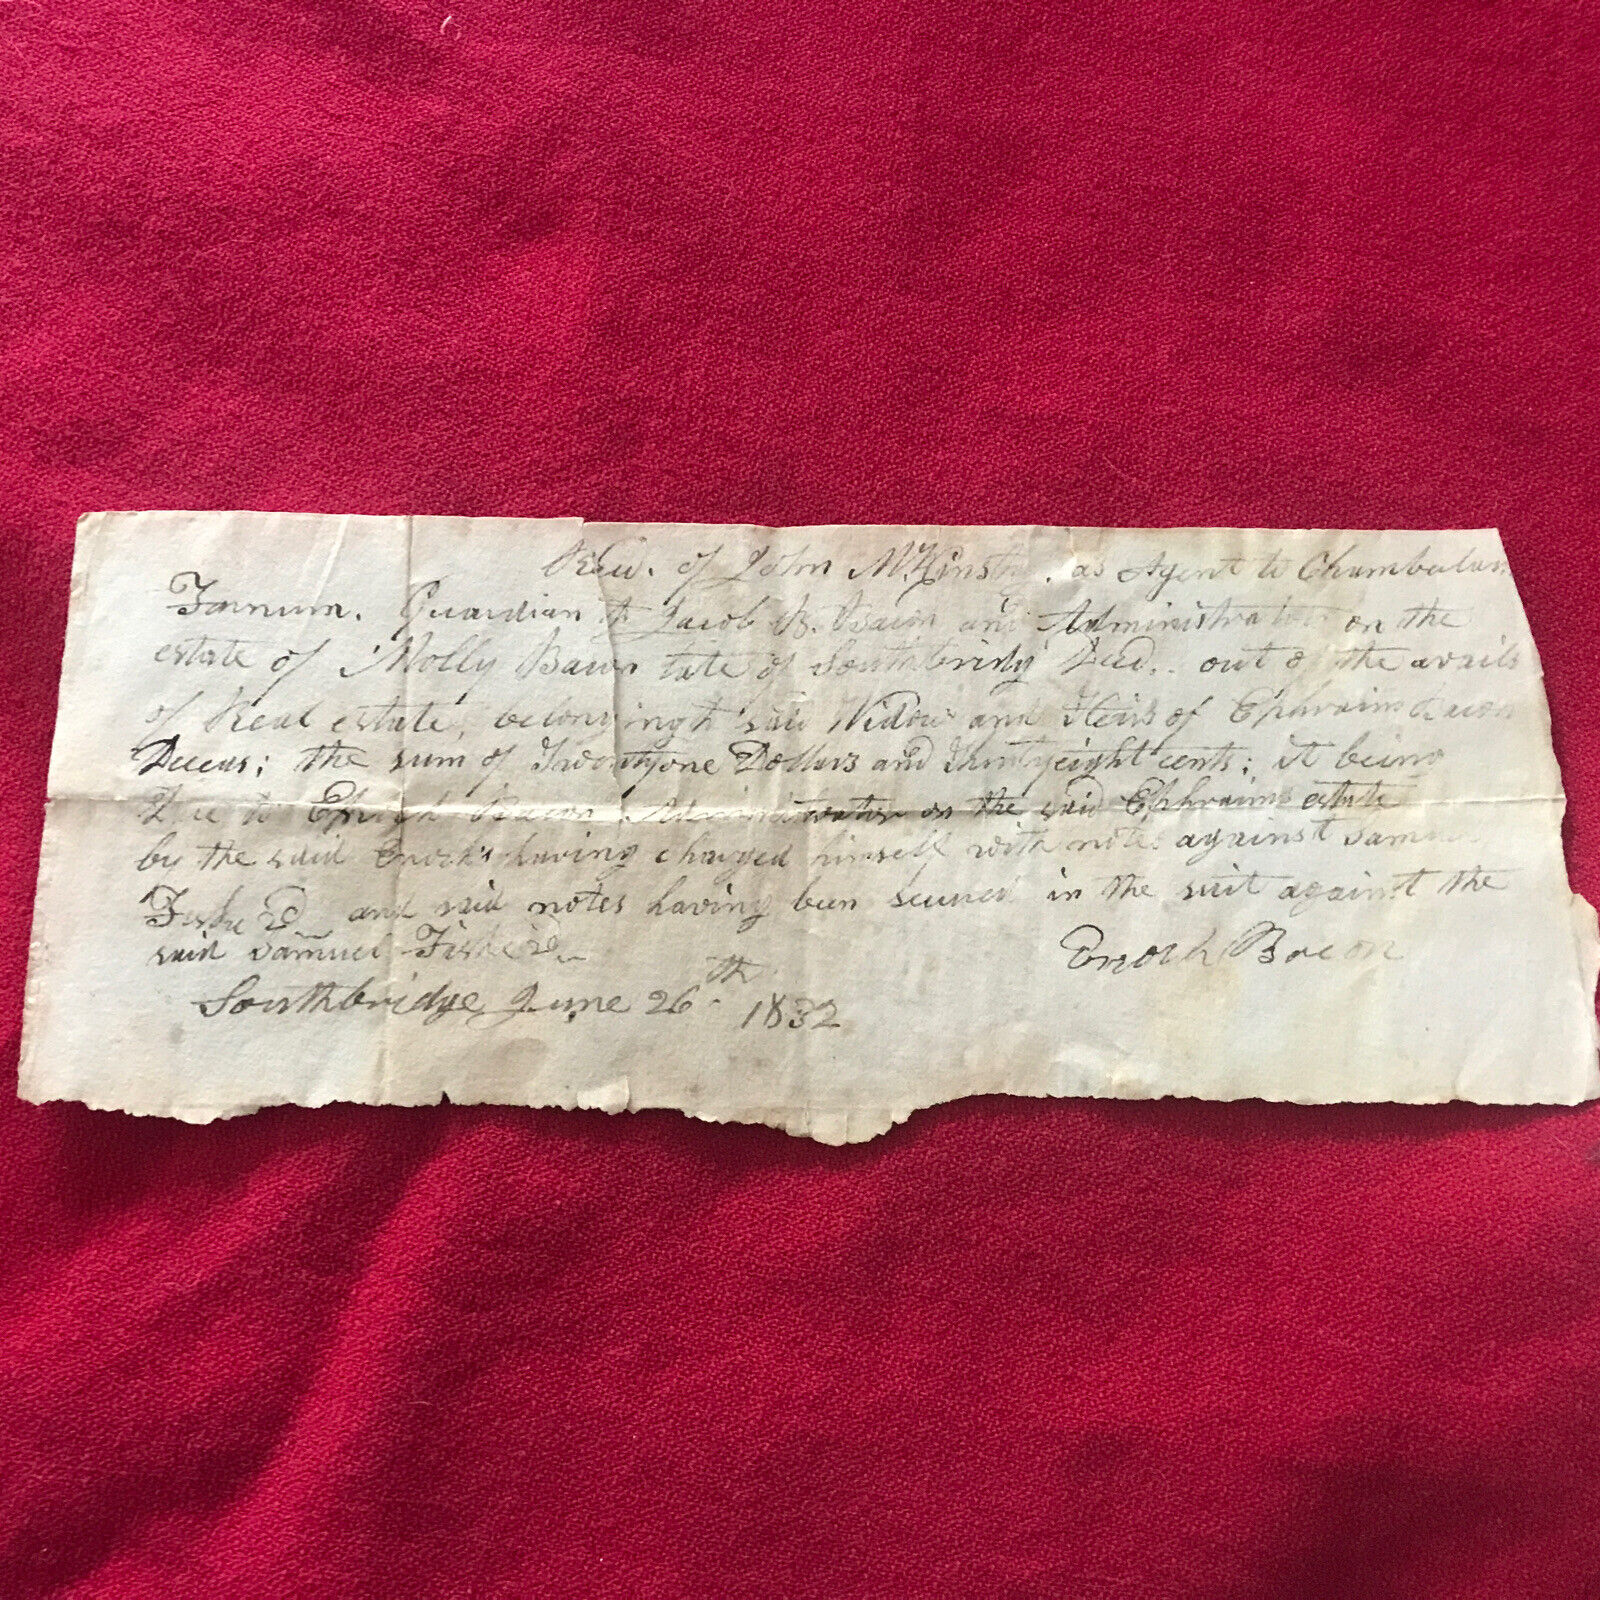 Recd. of John McKinstry. as Agent to Chamberlain
Farnum. Guardian of Jacob B. Bacon and Administrator on the
estate of Molly Bacon late of Southbridge Decd.. out of the avails
of Real estate, belonging to said Widow and Heirs of Ephraim Bacon
Deceas; the sum of Twentyone Dollars and eight cents; it being
Due to Enoch Bacon Administrator on the said Ephraims estate
by the said Enochs having charged himself with notes against Samuel
Fiske 2d and said notes having been secured in the suit against the
said Samuel Fiske 2d
Enoch Bacon
Southbridge June 26th 1832